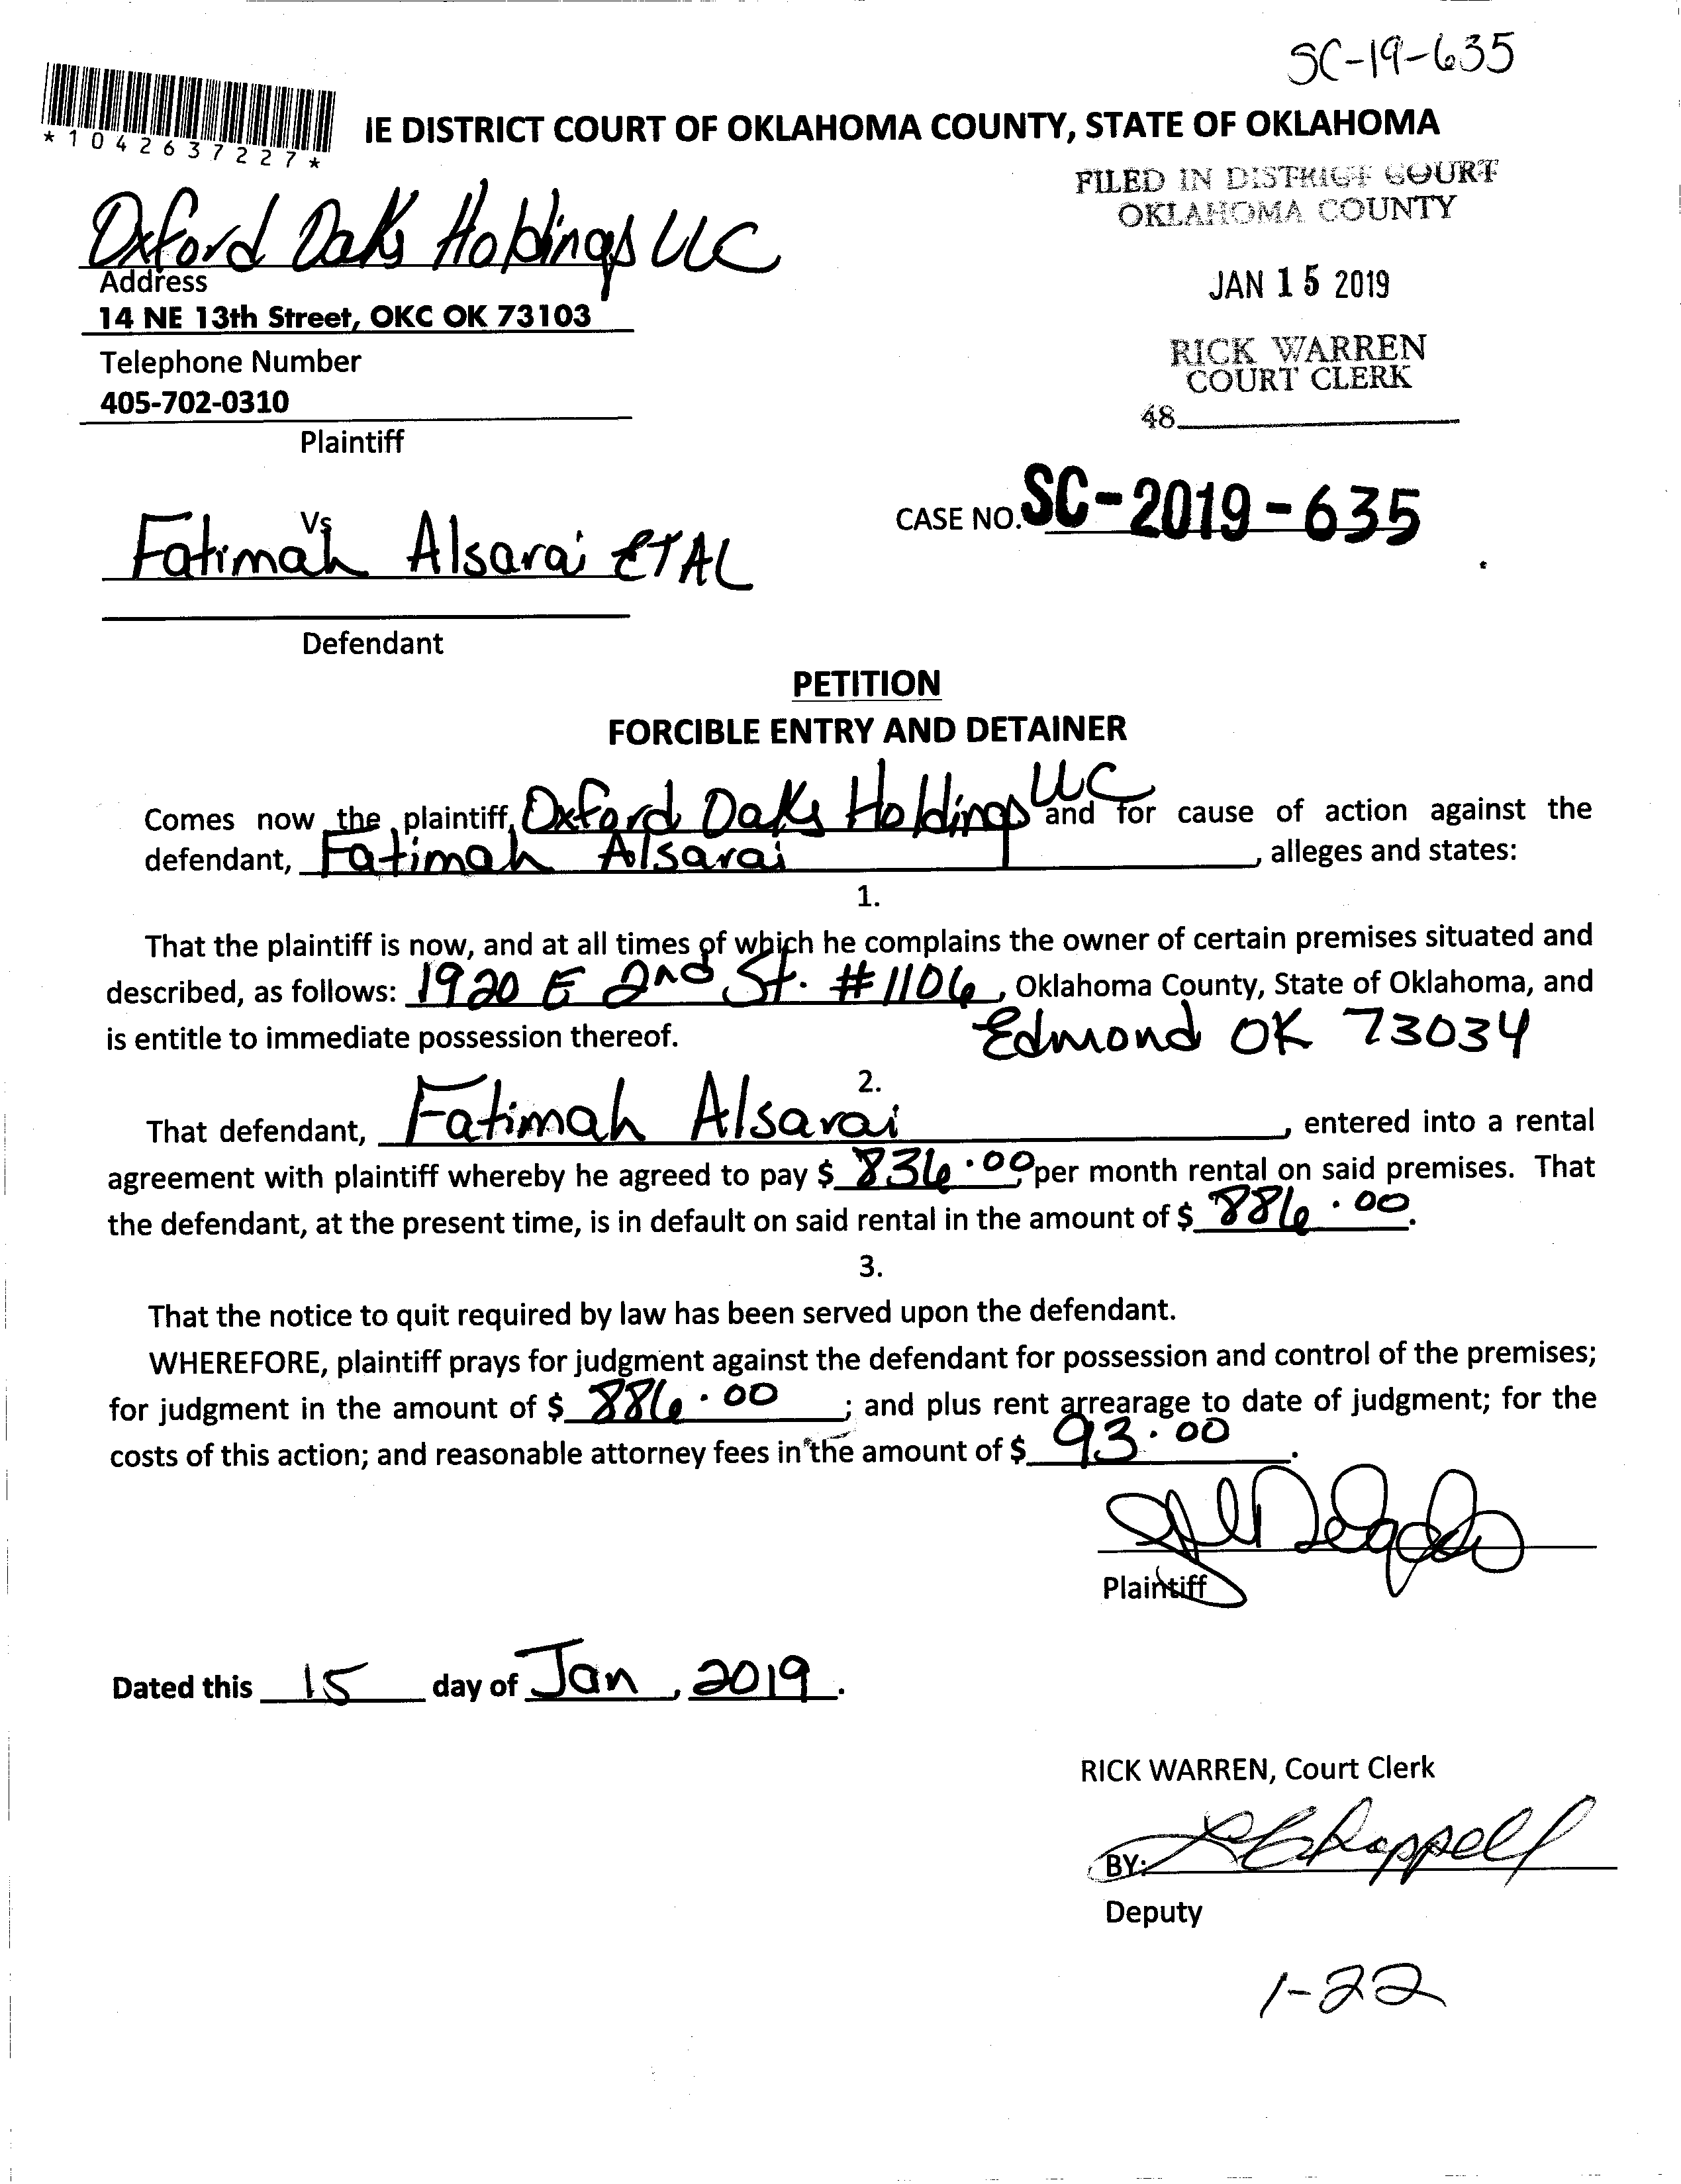 SC-19-635
*1042637227*
IE DISTRICT COURT OF OKLAHOMA COUNTY, STATE OF OKLAHOMA
FILED IN DISTRICT COURT
OKLAHOMA COUNTY
JAN 15 2019
RICK WARREN
COURT CLERK
48
Oxford Oaks Holdings LLC
Address
14 NE 13th Street, OKC OK 73103
Telephone Number
405-702-0310
Plaintiff
CASE NO. SC-2019-635
Vs
Fatimah Alsarai ETAL
Defendant
PETITION
FORCIBLE ENTRY AND DETAINER
Comes now the plaintiff, Oxford Oaks Holdings LLC and for cause of action against the
defendant, Fatimah Alsarai, alleges and states:
1.
That the plaintiff is now, and at all times of which he complains the owner of certain premises situated and
described, as follows: 1920 E 2nd St. #1106, Oklahoma County, State of Oklahoma, and
is entitle to immediate possession thereof. Edmond OK 73034
2.
That defendant, Fatimah Alsarai, entered into a rental
agreement with plaintiff whereby he agreed to pay $ 836.00 per month rental on said premises. That
the defendant, at the present time, is in default on said rental in the amount of $ 886.00.
3.
That the notice to quit required by law has been served upon the defendant.
WHEREFORE, plaintiff prays for judgment against the defendant for possession and control of the premises;
for judgment in the amount of $ 886.00 ; and plus rent arrearage to date of judgment; for the
costs of this action; and reasonable attorney fees in the amount of $ 93.00.
Plaintiff
Dated this 15 day of Jan, 2019.
RICK WARREN, Court Clerk
BY:
Deputy
1-22